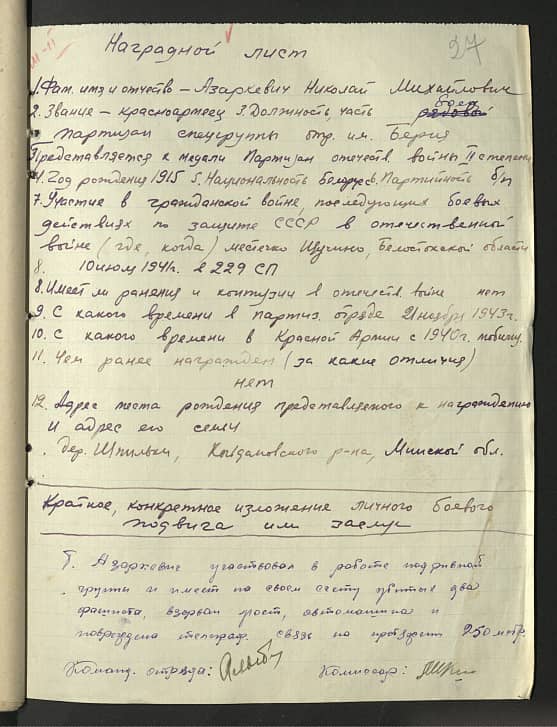 27
Наградной лист
1. Фам. имя и отчество – Азаркевич Николай Михайлович
боец
2. Звание – красноармеец 3. Должность, часть рядовой
Партизан спецгруппы отр. им. Берия
Представляется к медали Партизан отечеств. войны II степени
4. Год рождения 1915 5. Национальность Белорус 6. Партийность б/п
7. Участие в гражданской войне, последующих боевых
действиях по защите СССР в отечественной
войне (где, когда) местечко Щучино, Белостокской области
8. июль 1941г. в 229 СП
8. Имеет ли ранения и контузии в отечеств. войне нет
9. С какого времени в партиз. отряде 21 ноября 1943г.
10. С какого времени в Красной Армии с 1940г. мобилиз.
11. Чем ранее награжден (за какие отличия)
нет
12. Адрес места рождения представляемого к награждению
и адрес его семьи
дер. Шпильки, Койдановского р-на, Минской обл.
Краткое, конкретное изложение личного боевого
подвига или заслуг
Т. Азаркевич участвовал в работе подрывной
группы и имеет на своем счету убитые два
фашиста, взорван мост, автомашина и
повреждена телеграф. связь на протяжен. 250 метр.
Команд. отряда: Комиссар: